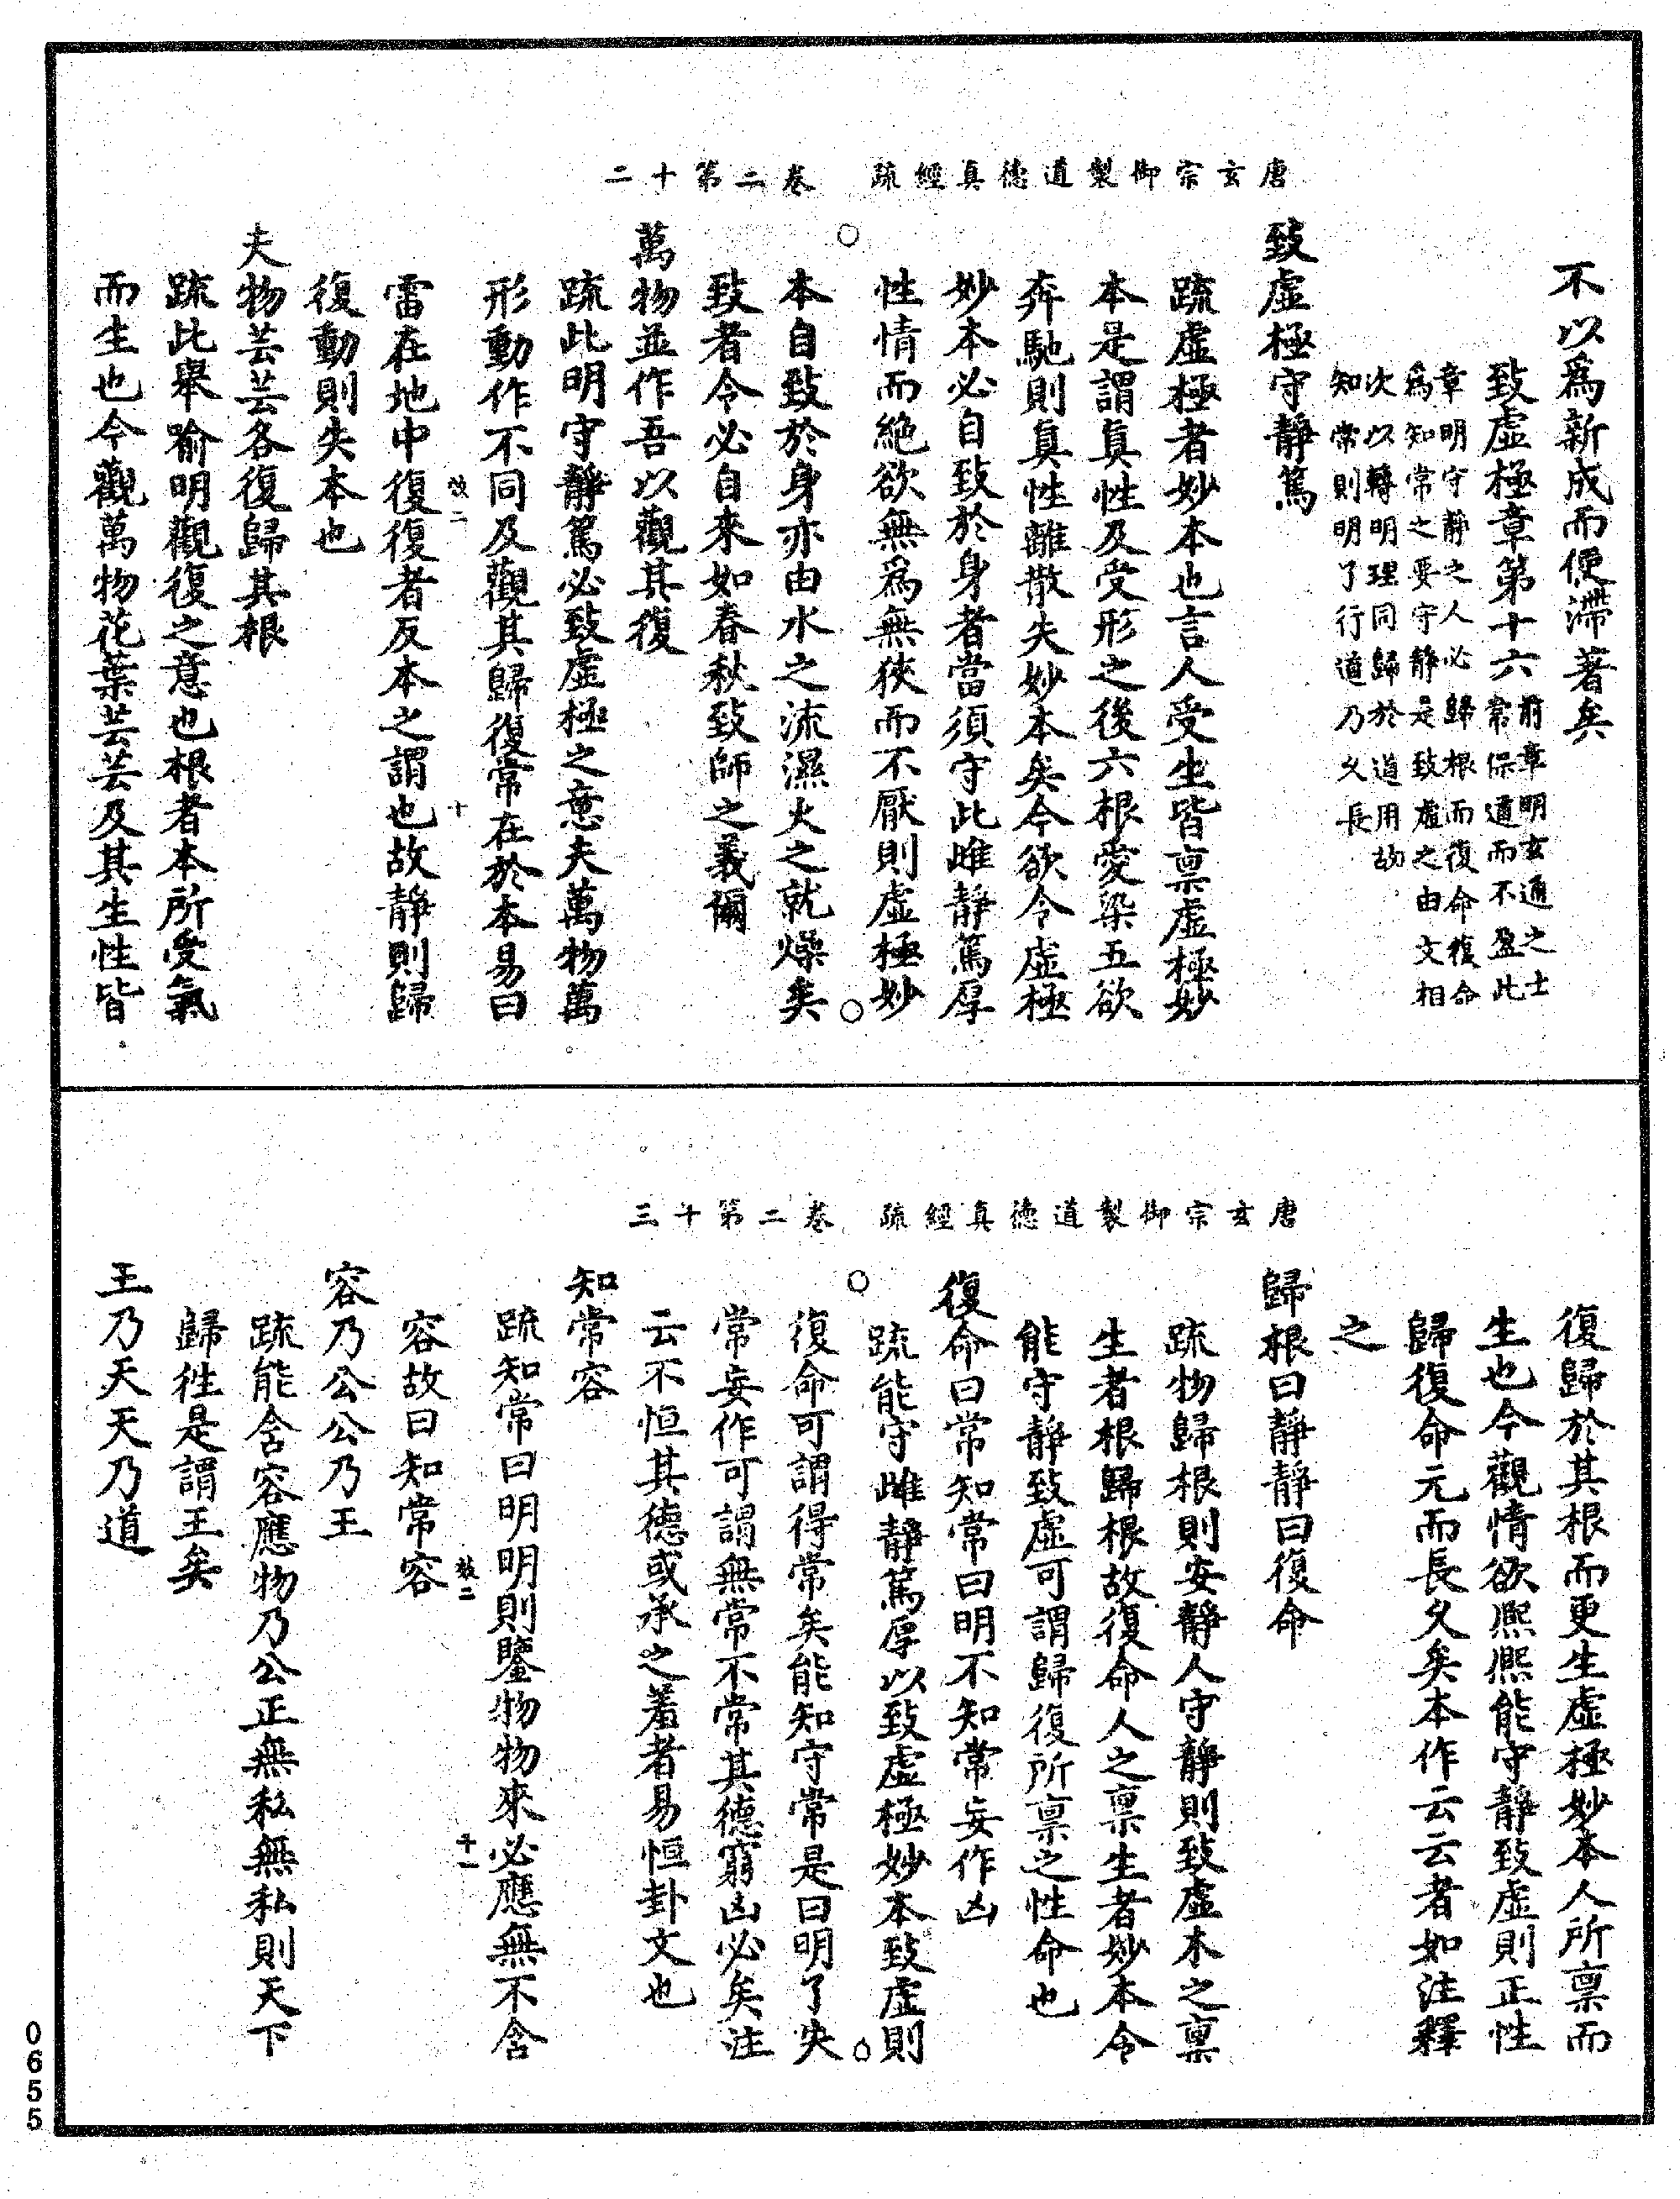 唐玄宗御製道德真經疏　卷二第十二
不以爲新成而便滯著矣
致虛極章第十六前章明玄通之士常保道而不盈此
章明守靜之人必歸根而復命復命
爲知常之要守靜是致虛之由文相
次以轉明理同歸於道用故
知常則明了行道乃久長
致虛極守靜篤
疏虛極者妙本也言人受生皆禀虛極妙
本是謂真性及受形之後六根愛染五欲
奔馳則真性離散失妙本矣今欲令虛極
妙本必自致於身者當須守此雌靜篤厚
性情而絕欲無爲無狹而不厭則虛極妙
本自致於身亦由水之流濕火之就燥矣
致者令必自來如春秋致師之義爾
萬物並作吾以觀其復
疏此明守靜篤必致虛極之意夫萬物萬
形動作不同及觀其歸復常在於本易曰
雷在地中復復者反本之謂也故靜則歸
效二
十
復動則失本也
夫物芸芸各復歸其根
疏此舉喻明觀復之意也根者本所受氣
而生也今觀萬物花葉芸芸及其生性皆
唐玄宗御製道德真經疏　卷二第十三
復歸於其根而更生虛極妙本人所禀而
生也今觀情欲熙熙能守靜致虛則正性
歸復命元而長久矣本作云云者如注釋
之
歸根曰靜靜曰復命
疏物歸根則安靜人守靜則致虛木之禀
生者根歸根故復命人之禀生者妙本今
能守靜致虛可謂歸復所禀之性命也
復命曰常知常曰明不知常妄作凶
疏能守雌靜篤厚以致虛極妙本致虛則
復命可謂得常矣能知守常是曰明了失
常妄作可謂無常不常其德窮凶必矣注
云不恒其德或承之羞者易恒卦文也
知常容
疏知常曰明明則鑒物物來必應無不含
效二
十一
容故曰知常容
容乃公公乃王
疏能含容應物乃公正無私無私則天下
歸往是謂王矣
王乃天天乃道
0655